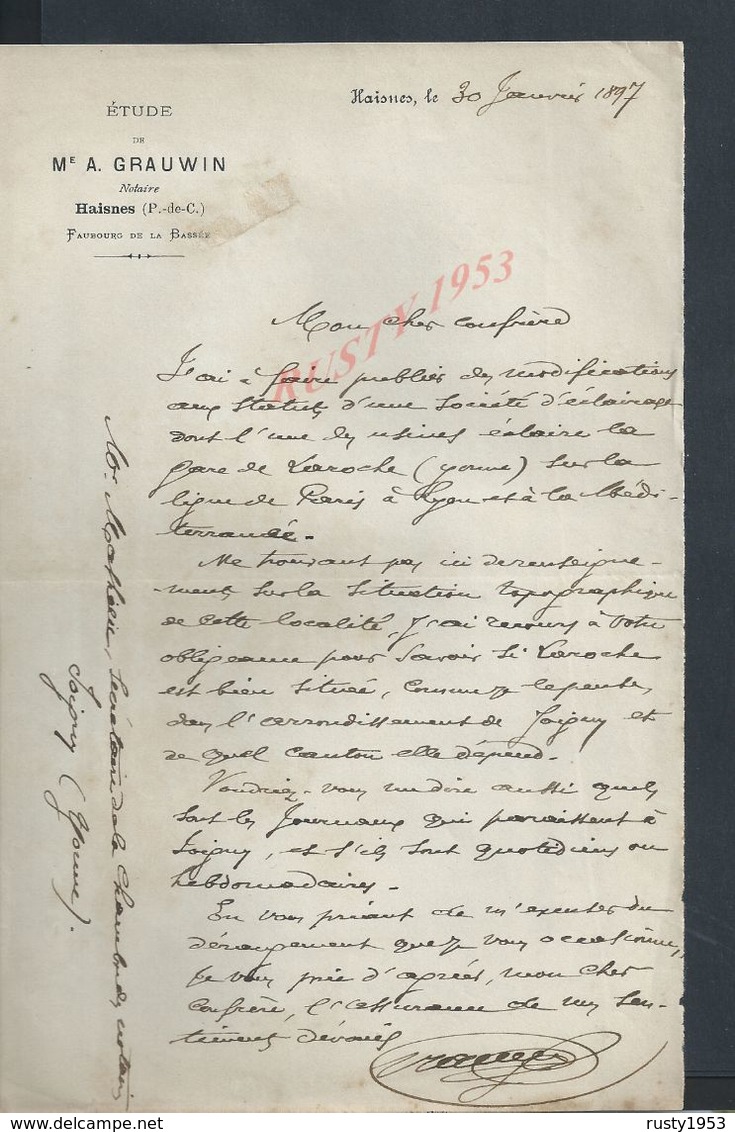 ÉTUDE
DE
ME A. GRAUWIN
Notaire
Haisnes (P.-de-C.)
FAUBOURG DE LA BASSÉE
Haisnes, le 30 Janvier 1897
RUSTY 1953
Mon cher confrère
J'ai à faire publier des modifications
aux statuts d'une Société d'éclairage
dont l'une des usines éclaire la
gare de Laroche (Yonne) sur la
ligne de Paris à Lyon et à la Médi-
terranée.
Ne trouvant pas ici de renseigne-
ments sur la situation topographique
de cette localité, J'ai recours à votre
obligeance pour savoir si Laroche
est bien située, comme je le pense,
dans l'arrondissement de Joigny et
de quel canton elle dépend.
Voudriez-vous me dire aussi quels
sont les journaux qui paraissent à
Joigny, et s'ils sont quotidiens ou
hebdomadaires.
En vous priant de m'excuser du
dérangement que je vous occasionne,
je vous prie d'agréer, mon cher
confrère, l'assurance de mes sen-
timents dévoués
Grauwin
Mr. Mathieu, Secrétaire de la Chambre des notaires
Joigny (Yonne).
rusty1953